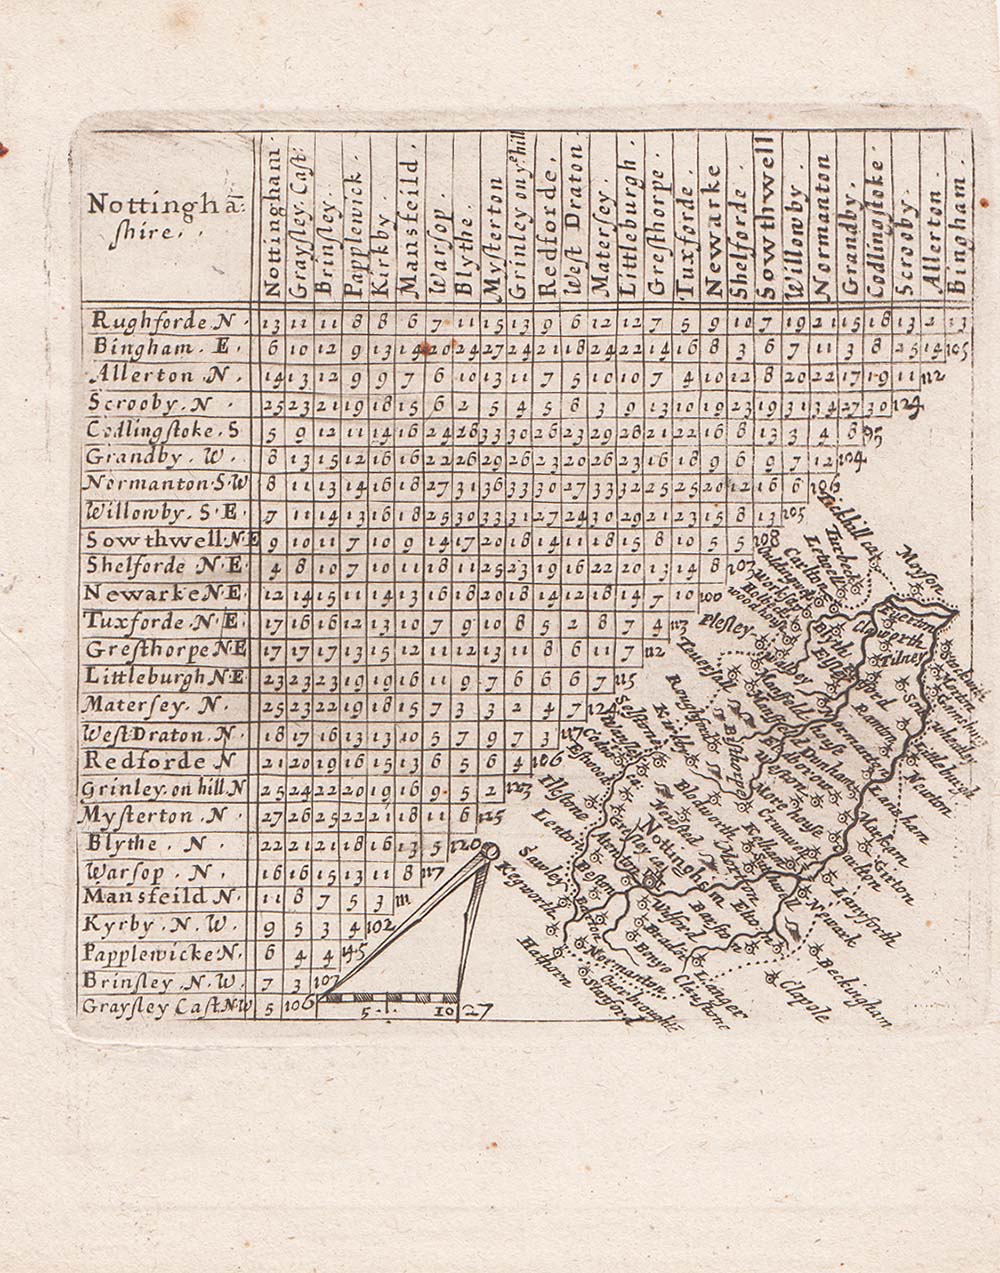 Nottinghā:
shire.
Nottingham.
Graysley. Cast:
Brinsley.
Papplewick.
Kirkby.
Mansfeild.
Warsop.
Blythe.
Mysterton
Grinley on yᵉ hill
Redforde.
West Draton.
Matersey.
Littleburgh.
Gresthorpe.
Tuxforde.
Newarke
Shelforde.
Sowthwell
Willowby.
Normanton
Grandby.
Codlingstoke.
Scrooby.
Allerton.
Bingham.
Rughforde N. 13 11 11 8 8 6 7 11 15 13 9 6 12 12 7 5 9 10 7 19 21 15 18 13 2 13
Bingham. E. 6 10 12 9 13 14 20 24 27 24 21 18 24 22 14 16 8 3 6 7 11 3 8 25 14 105
Allerton. N. 14 13 12 9 9 7 6 10 13 11 7 5 10 10 7 4 10 12 8 20 22 17 19 11 112
Scrooby. N. 25 23 21 19 18 15 6 2 5 4 5 6 3 9 13 10 19 23 19 31 34 27 30 124
Codlingstoke. S 5 9 12 11 14 16 24 28 33 30 26 23 29 28 21 22 16 8 13 3 4 8 95
Grandby. W. 8 13 15 12 16 16 22 26 29 26 23 20 26 23 16 18 9 6 9 7 12 104
Normanton. S. W 8 11 13 14 16 18 27 31 36 33 30 27 33 32 25 25 20 12 16 6 106
Willowby. S. E. 7 11 14 13 16 18 25 30 33 31 27 24 30 29 21 23 15 8 13 105
Sowthwell N E 9 10 11 7 10 9 14 17 20 18 14 11 18 15 8 10 5 5 108
Shelforde N. E 4 8 10 7 10 11 18 11 25 23 19 16 22 20 13 14 8 107
Newarke N E. 12 14 15 11 14 13 16 18 20 18 14 12 18 14 7 10 100
Tuxforde. N. E. 17 16 16 12 13 10 7 9 10 8 5 2 8 7 4 117
Gresthorpe N E 17 17 17 13 15 12 11 12 13 11 8 6 11 7 112
Littleburgh N. E 23 23 23 19 19 16 11 9 7 6 6 6 7 115
Matersey. N. 25 23 22 19 18 15 7 3 3 2 4 7 124
West Draton. N. 18 17 16 13 13 10 5 7 9 7 3 117
Redforde N 21 20 19 16 15 13 6 5 6 4 106
Grinley. on hill. N 25 24 22 20 19 16 9 5 2 125
Mysterton. N. 27 26 25 22 21 18 11 6 125
Blythe. N. 22 21 21 18 16 13 5 120
Warsop. N. 16 16 15 13 11 8 117
Mansfeild N. 11 8 7 5 3 111
Kyrby. N. W. 9 5 3 4 102
Papplewicke N. 6 4 4 145
Brinsley. N. W. 7 3 107
Graysley Cast. N. W 5 106
5. 10 27
Tickhill cas
Moyson
Letwell
Carlton
Worksop
woodhouse
Plesley
Egerton
Claworth
Tilney
Blyth
Teversall
Walby
Mansfeild
Mansfeild
house
Rughford
Normanton
Ramton
Wheatly
Littleburgh
Newton
Lanham
Kirkby
Selston
Codnor
Bisthorpe
Weston
Dunham
More house
Cromwell
Kelham
Southwell
Marnham
Carlton
Girton
Ilkeston
Lenton
Blodworth
Newsted
Greseley cast
Nottingham
Morton
Sawley
Kegworth
Beston
Wilford
Basford
Elton
Newark
Lanyforth
Barton
Bradmr
Benyo
Normanton
Beckingham
Clapole
Langer
Clawstone
Hathorn
Stanford